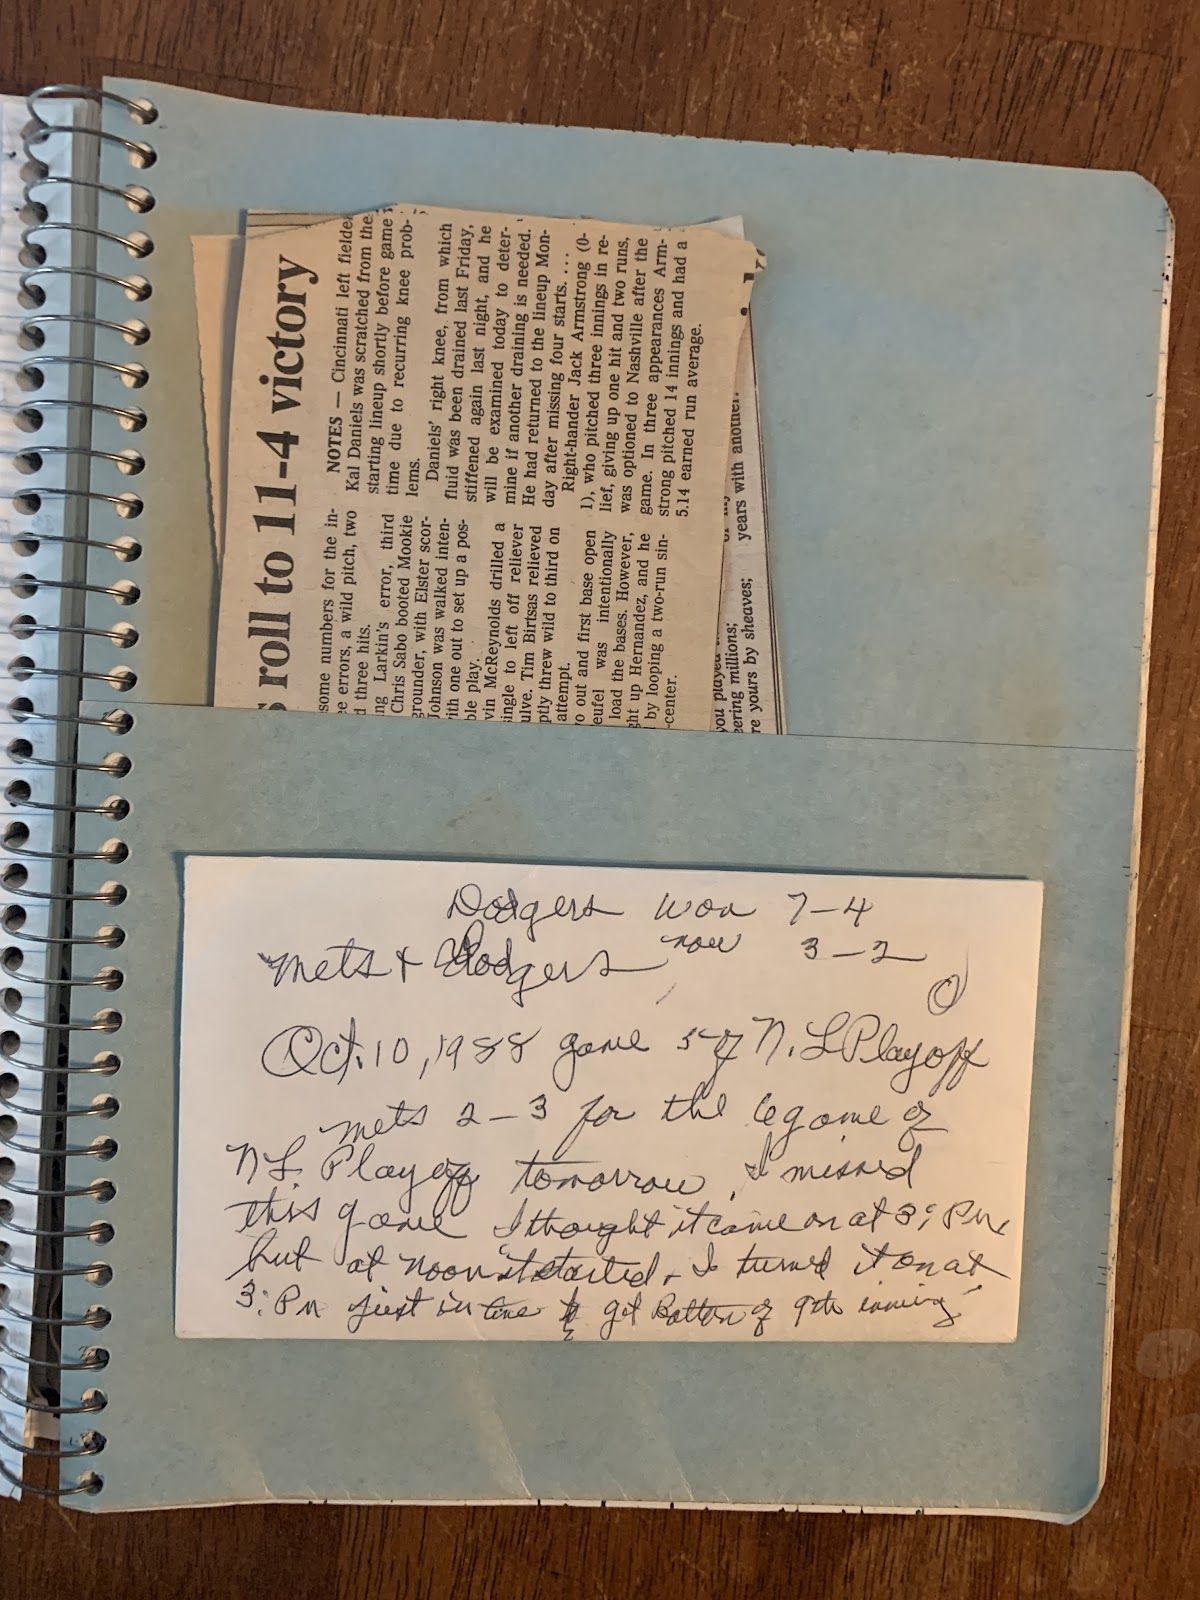 s roll to 11-4 victory
some numbers for the in-
ee errors, a wild pitch, two
d three hits.
ng Larkin's error, third
Chris Sabo booted Mookie
grounder, with Elster scor-
Johnson was walked inten-
ith one out to set up a pos-
ble play.
vin McReynolds drilled a
ingle to left off reliever
ulve. Tim Birtsas relieved
ptly threw wild to third on
attempt.
o out and first base open
eufel was intentionally
load the bases. However,
ght up Hernandez, and he
by looping a two-run sin-
-center.
NOTES — Cincinnati left fielder
Kal Daniels was scratched from the
starting lineup shortly before game
time due to recurring knee prob-
lems.
Daniels' right knee, from which
fluid was been drained last Friday,
stiffened again last night, and he
will be examined today to deter-
mine if another draining is needed.
He had returned to the lineup Mon-
day after missing four starts. ...
Right-hander Jack Armstrong (0-
1), who pitched three innings in re-
lief, giving up one hit and two runs,
was optioned to Nashville after the
game. In three appearances Arm-
strong pitched 14 innings and had a
5.14 earned run average.
you played
eering millions;
re yours by sheaves;
years with another.
Dodgers won 7-4
Mets + Dodgers now 3-2
Oct. 10, 1988 game 5 of N.L Playoff
Mets 2-3 for the 6 game of
NL. Playoff tomorrow, I missed
this game I thought it came on at 3: PM,
but at noon it started, I turned it on at
3: PM just in time to get Bottom of 9th inning